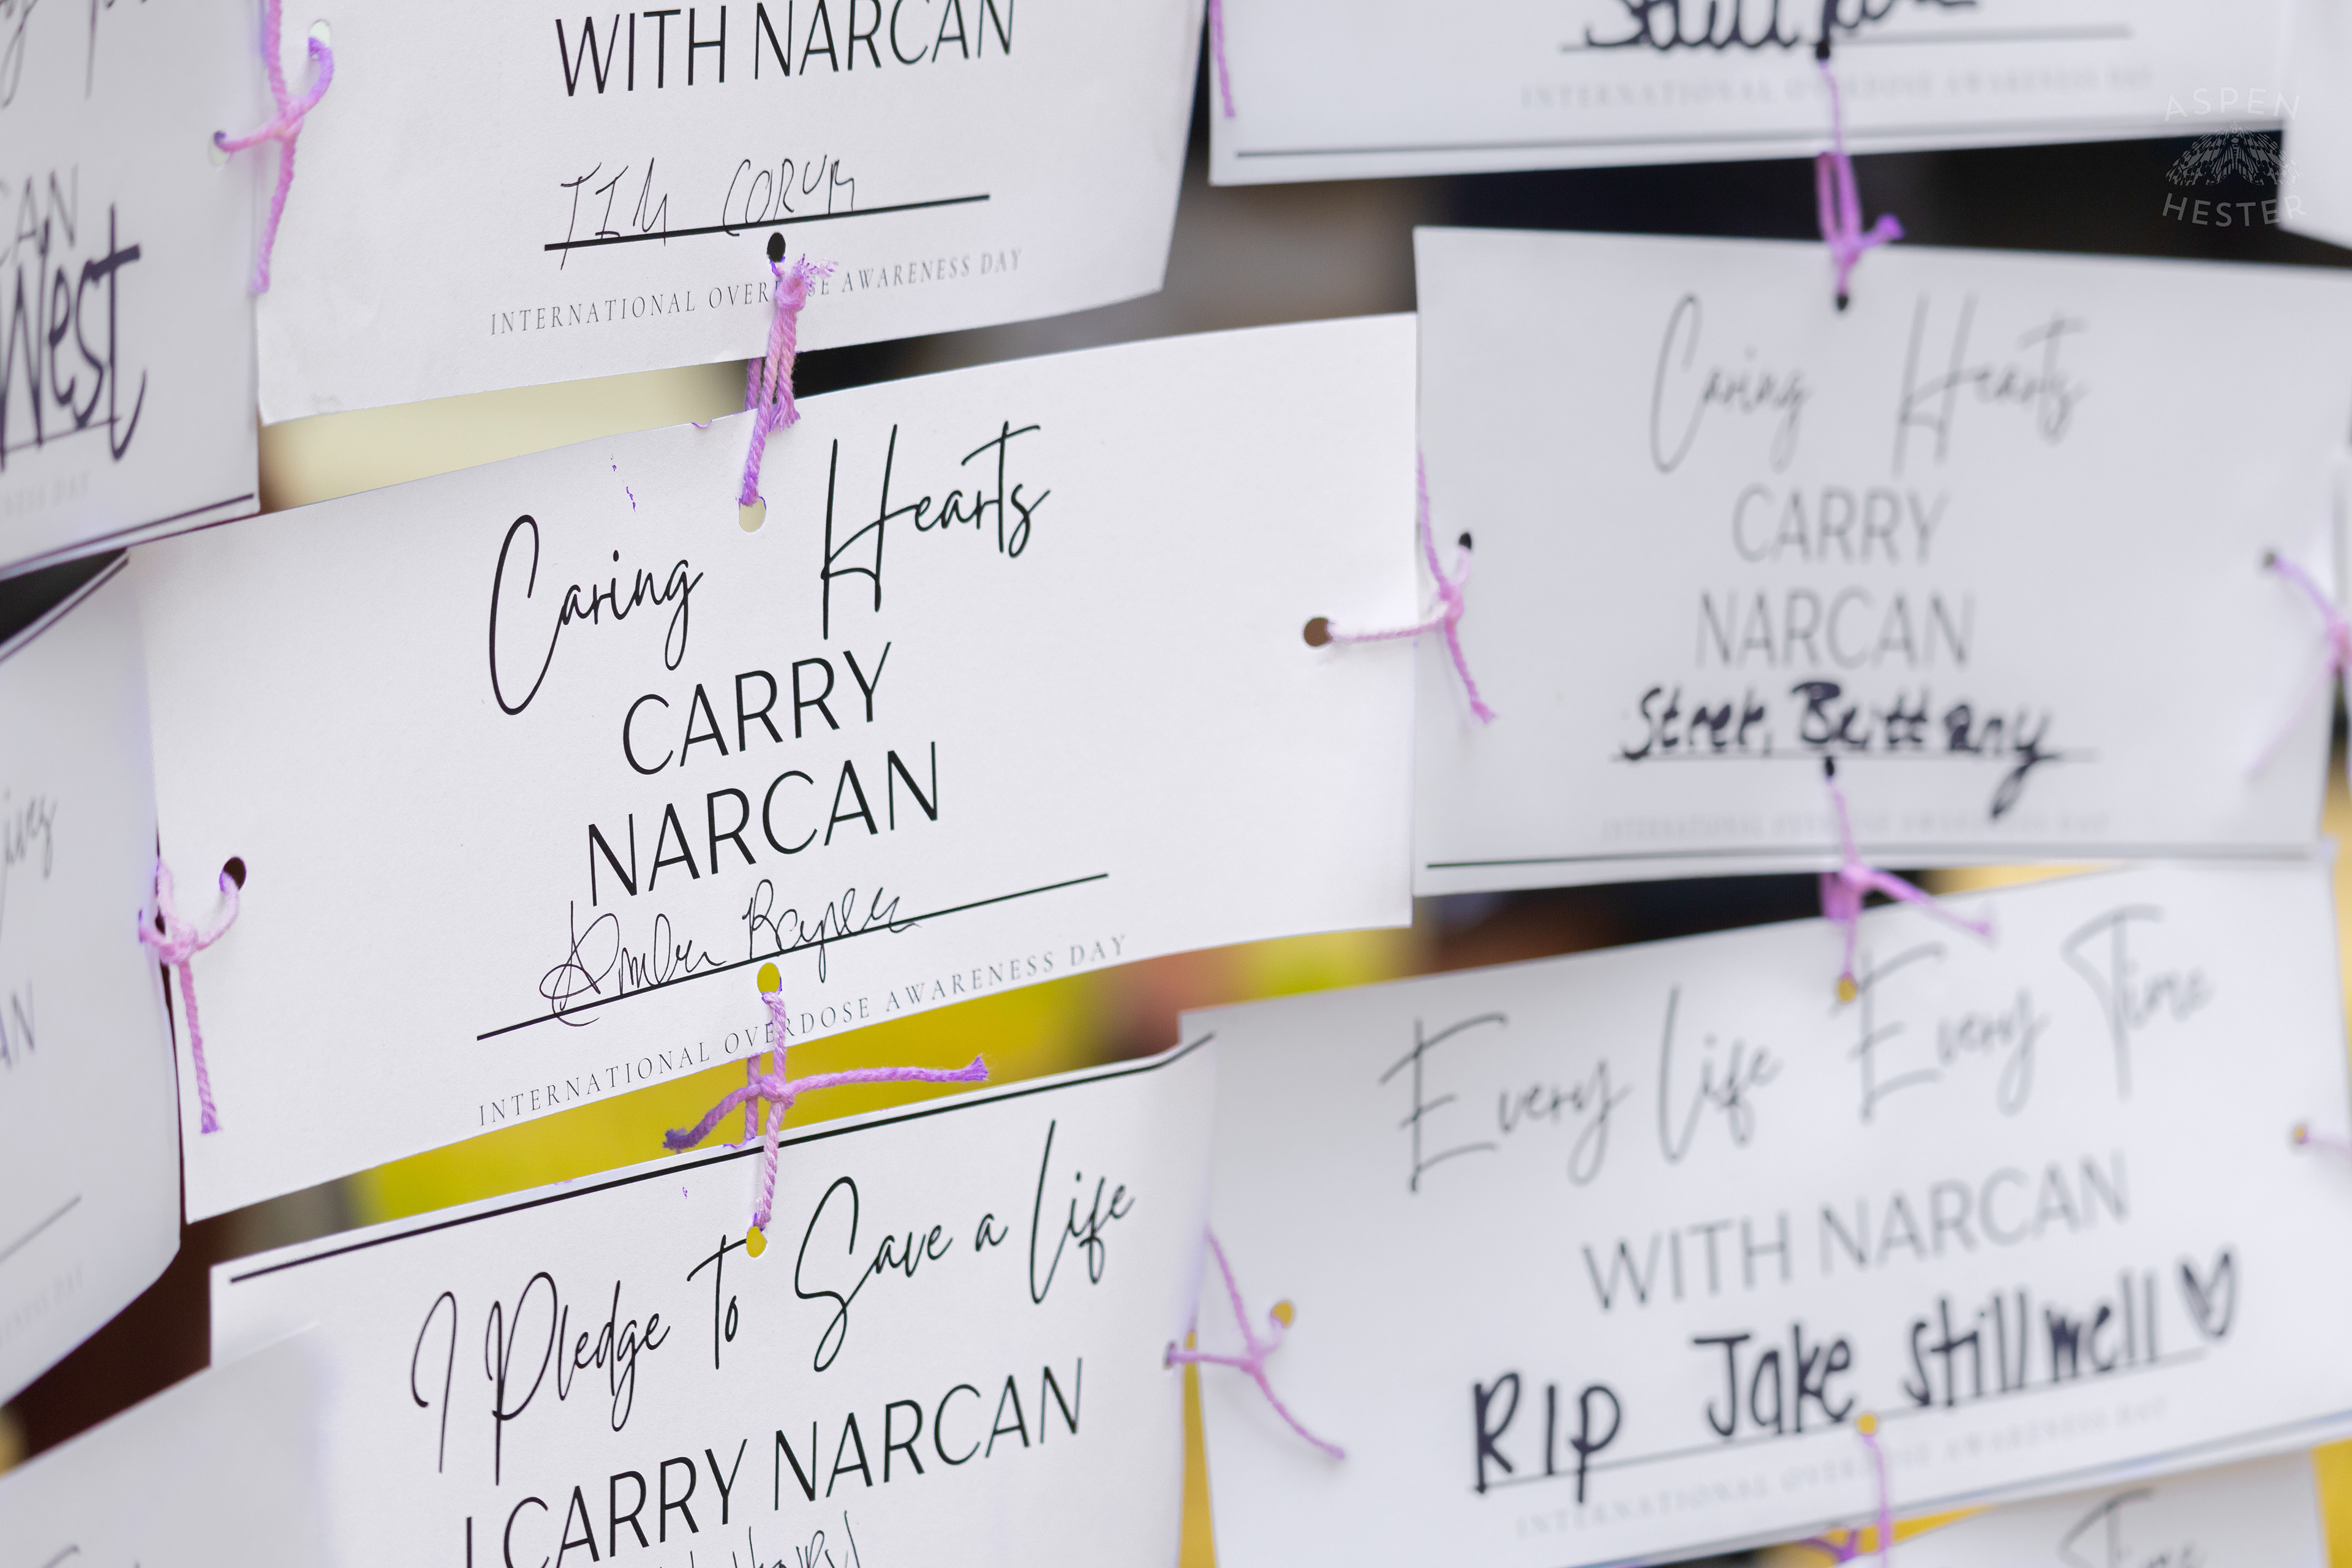 WITH NARCAN
TIM CORUM
INTERNATIONAL OVERDOSE AWARENESS DAY
INTERNATIONAL OVERDOSE AWARENESS DAY
ASPEN
HESTER
CAN
West
NESS DAY
Caring Hearts
CARRY
NARCAN
Amber
INTERNATIONAL OVERDOSE AWARENESS DAY
Caring Hearts
CARRY
NARCAN
Street, Brittany
INTERNATIONAL OVERDOSE AWARENESS DAY
AN
I Pledge To Save a Life
I CARRY NARCAN
Every Life Every Time
WITH NARCAN
RIP Jake Stillwell
INTERNATIONAL OVERDOSE AWARENESS DAY
Time